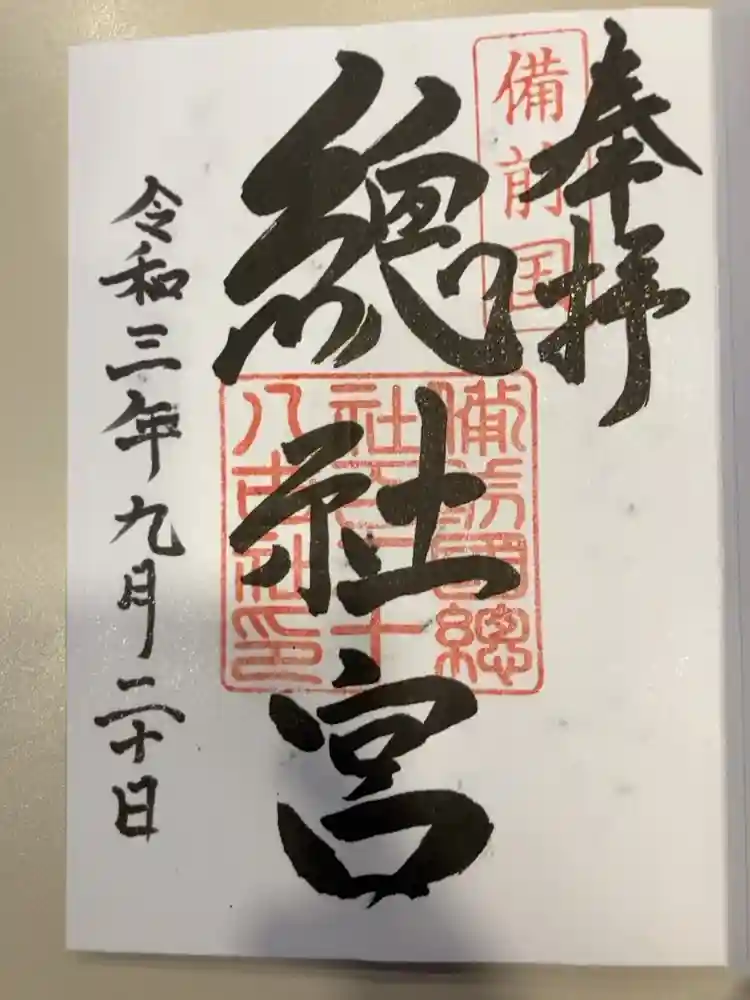 奉拝
備前国
總社宮
備前國總社百二十八古社印
令和三年九月二十日